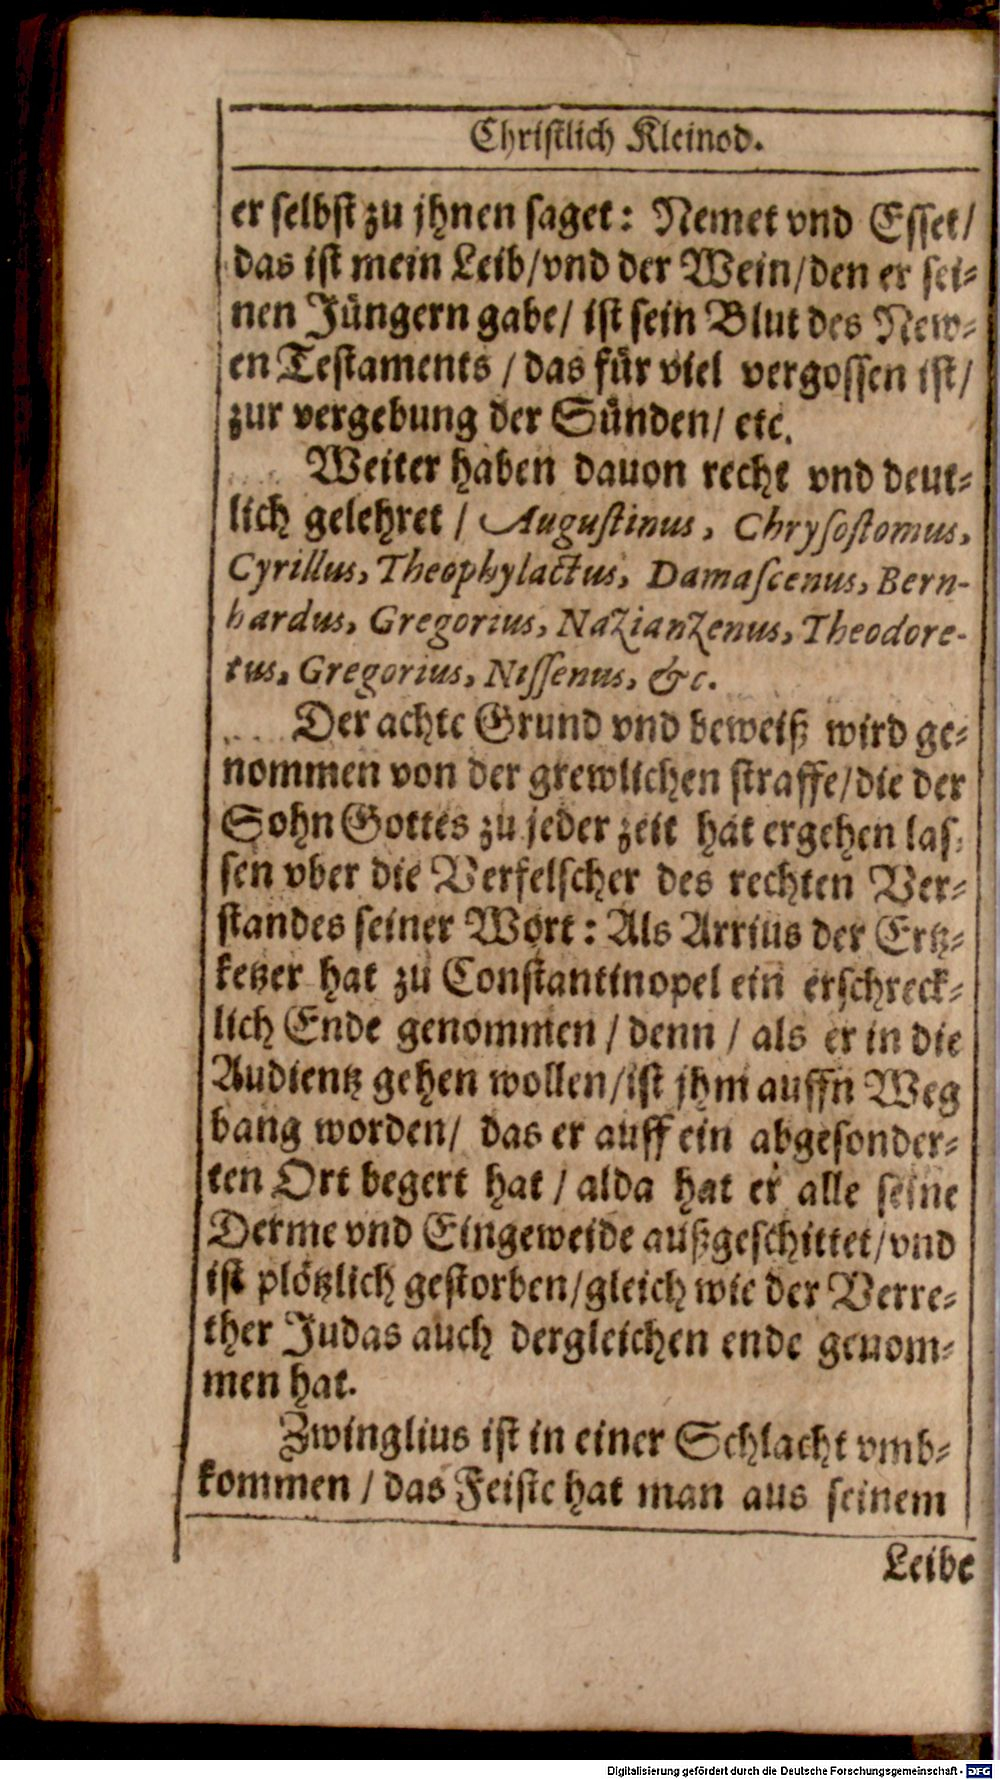 Christlich Kleinod.
er selbst zu jhnen saget: Nemet vnd Esset/
das ist mein Leib/vnd der Wein/den er sei-
nen Jüngern gabe/ ist sein Blut des New-
en Testaments / das für viel vergossen ist/
zur vergebung der Sünden/ etc.
Weiter haben dauon recht vnd deut-
lich gelehret / Augustinus, Chrysostomus,
Cyrillus, Theophylactus, Damascenus, Bern-
hardus, Gregorius, Nazianzenus, Theodore-
tus, Gregorius, Nissenus, &c.
Der achte Grund vnd beweiß wird ge-
nommen von der grewlichen straffe/die der
Sohn Gottes zu jeder zeit hat ergehen las-
sen vber die Verfelscher des rechten Ver-
standes seiner Wort: Als Arrius der Ertz-
ketzer hat zu Constantinopel ein erschreck-
lich Ende genommen / denn / als er in die
Audientz gehen wollen/ist jhm auffn Weg
bang worden/ das er auff ein abgesonder-
ten Ort begert hat / alda hat er alle seine
Derme vnd Eingeweide außgeschittet/vnd
ist plötzlich gestorben/gleich wie der Verre-
ther Judas auch dergleichen ende genom-
men hat.
Zwinglius ist in einer Schlacht vmb-
kommen / das Feiste hat man aus seinem
Leibe
Digitalisierung gefördert durch die Deutsche Forschungsgemeinschaft - DFG